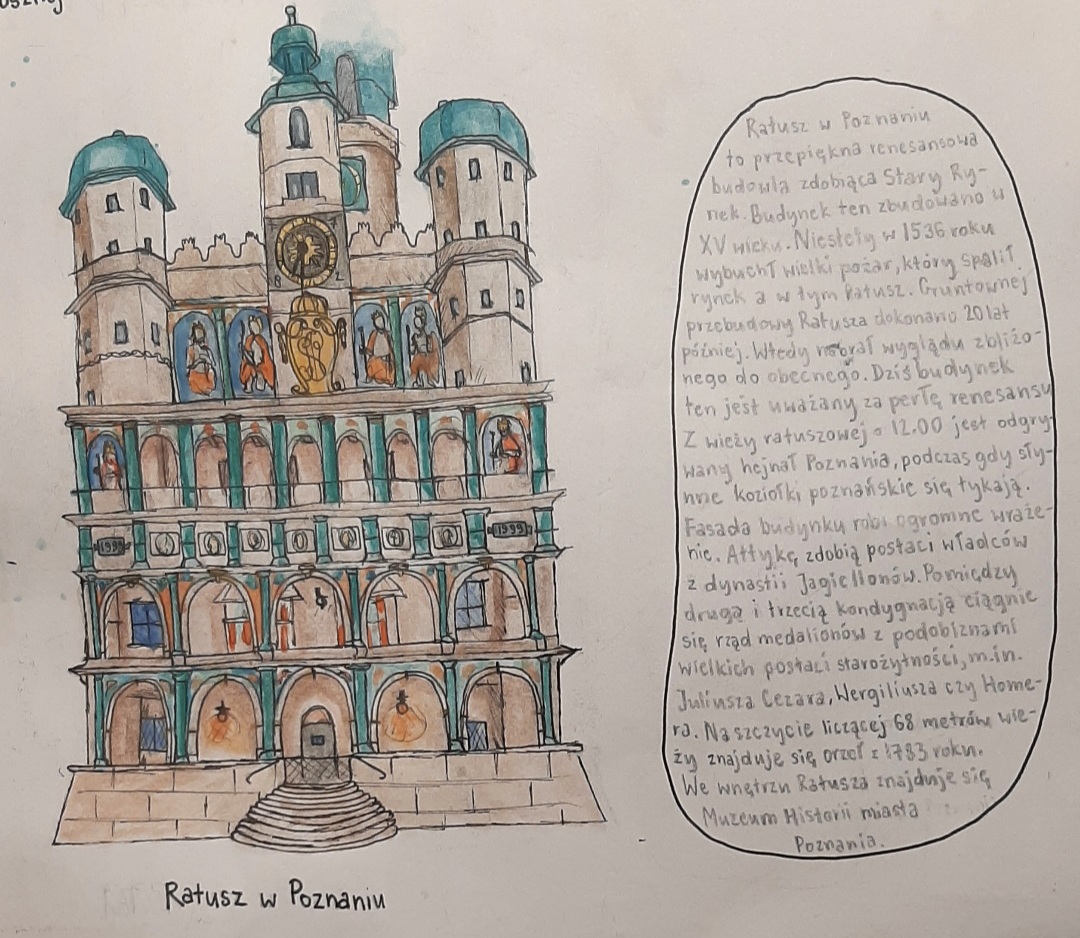 Ratusz w Poznaniu
to przepiękna renesansowa
budowla zdobiąca Stary Ry-
nek. Budynek ten zbudowano w
XV wieku. Niestety w 1536 roku
wybuchł wielki pożar, który spalił
rynek a w tym Ratusz. Gruntownej
przebudowy Ratusza dokonano 20 lat
później. Wtedy nabrał wyglądu zbliżo-
nego do obecnego. Dziś budynek
ten jest uważany za perłę renesansu
Z wieży ratuszowej o 12.00 jest odgry-
wany hejnał Poznania, podczas gdy sły-
nne koziołki poznańskie się tykają.
Fasada budynku robi ogromne wraże-
nie. Attykę zdobią postaci władców
z dynastii Jagiellonów. Pomiędzy
drugą i trzecią kondygnacją ciągnie
się rząd medalionów z podobiznami
wielkich postaci starożytności, m.in.
Juliusza Cezara, Wergiliusza czy Home-
ra. Na szczycie liczącej 68 metrów wie-
ży znajduje się orzeł z 1783 roku.
We wnętrzu Ratusza znajduje się
Muzeum Historii miasta
Poznania.
1999
1999
Ratusz w Poznaniu